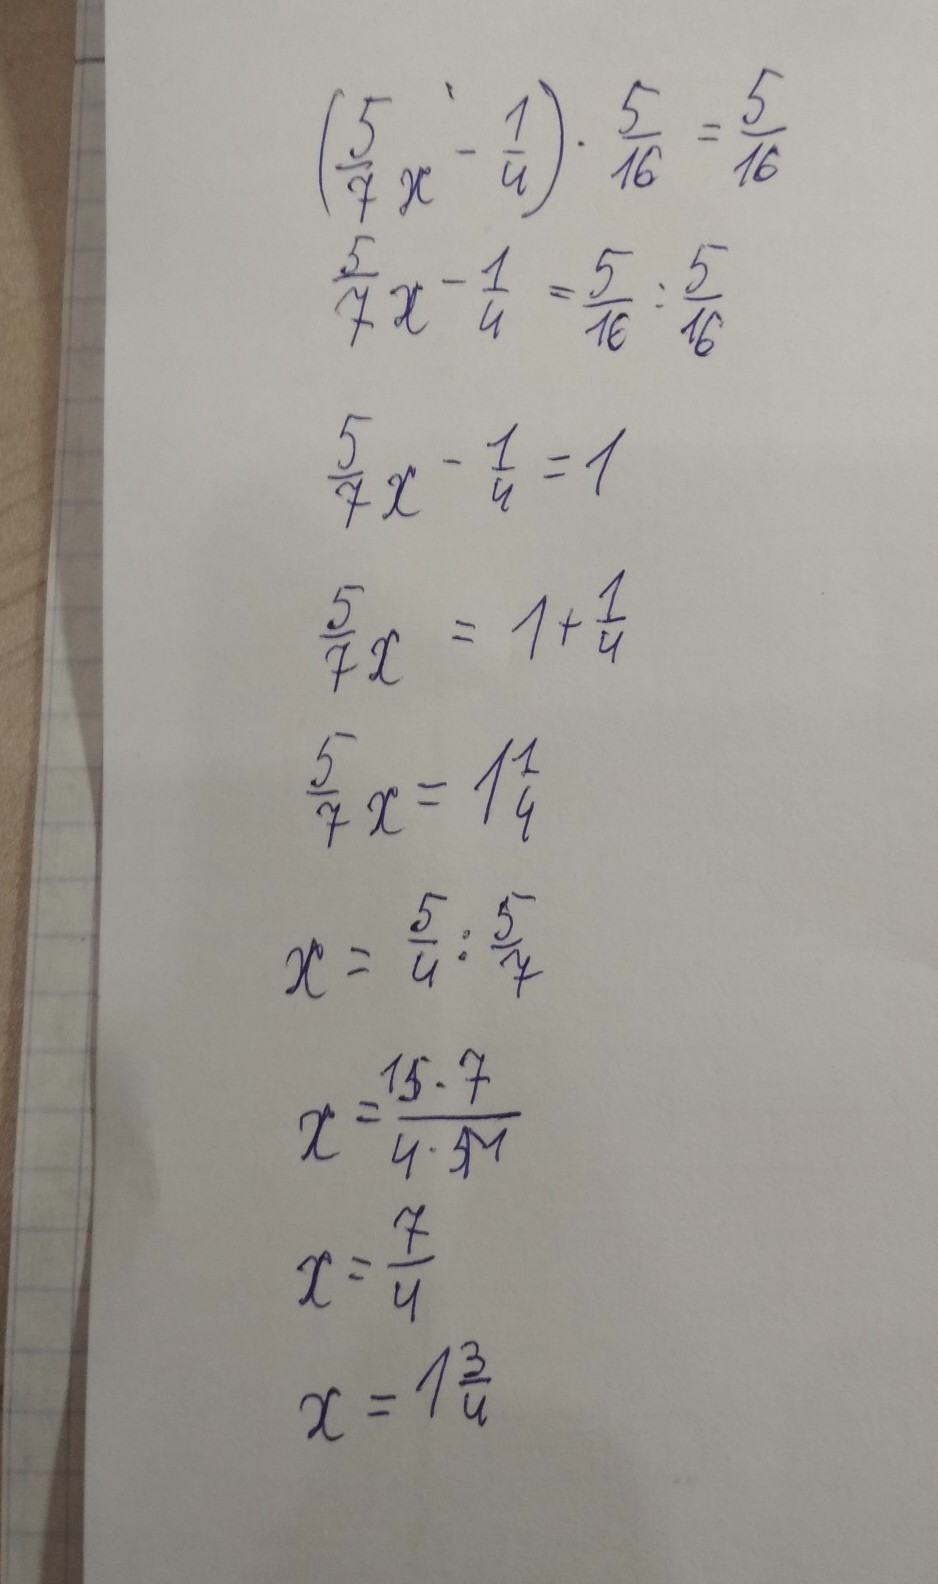 (5/7 x - 1/4) · 5/16 = 5/16
5/7 x - 1/4 = 5/16 : 5/16
5/7 x - 1/4 = 1
5/7 x = 1 + 1/4
5/7 x = 1 1/4
x = 5/4 : 5/7
x = 15 · 7 / 4 · 51
x = 7/4
x = 1 3/4